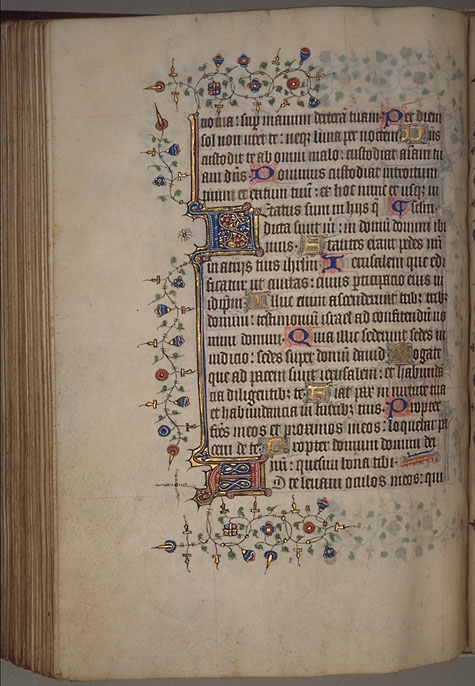 sup manum dexterā tuam. Per diem
sol non uret te : neq; luna per noctem. Dn̄s
custodit te ab omni malo : custodiat aīam tu
am dn̄s. Dominus custodiat introitum
tuum et exitum tuū : ex hoc nunc et usq; in
Letatus sum in hijs q̄ seclm̄.
dicta sunt m̄ : in domū domini ibi
mus. Stantes erant pedes nr̄i
in atrijs tuis ihrlm̄. Ierusalem que edi
ficatur ut ciuitas : cuius participacio eius in
idip̄m. Illuc enim ascenderunt trib; trib;
domini : testimonium israel ad confitendū no
mini domini. Quia illic sederunt sedes in
iudicio : sedes super domū dauid. Rogate
que ad pacem sunt ierusalem : et habunda
cia diligentib; te. Fiat pax in uirtute tua
et habundancia in turrib; tuis. Propter
fr̄es meos et proximos meos : loquebar pa
cem de te. Propter domum domini dei
nr̄i : quesiui bona tibi.
Ad te leuaui oculos meos : qui